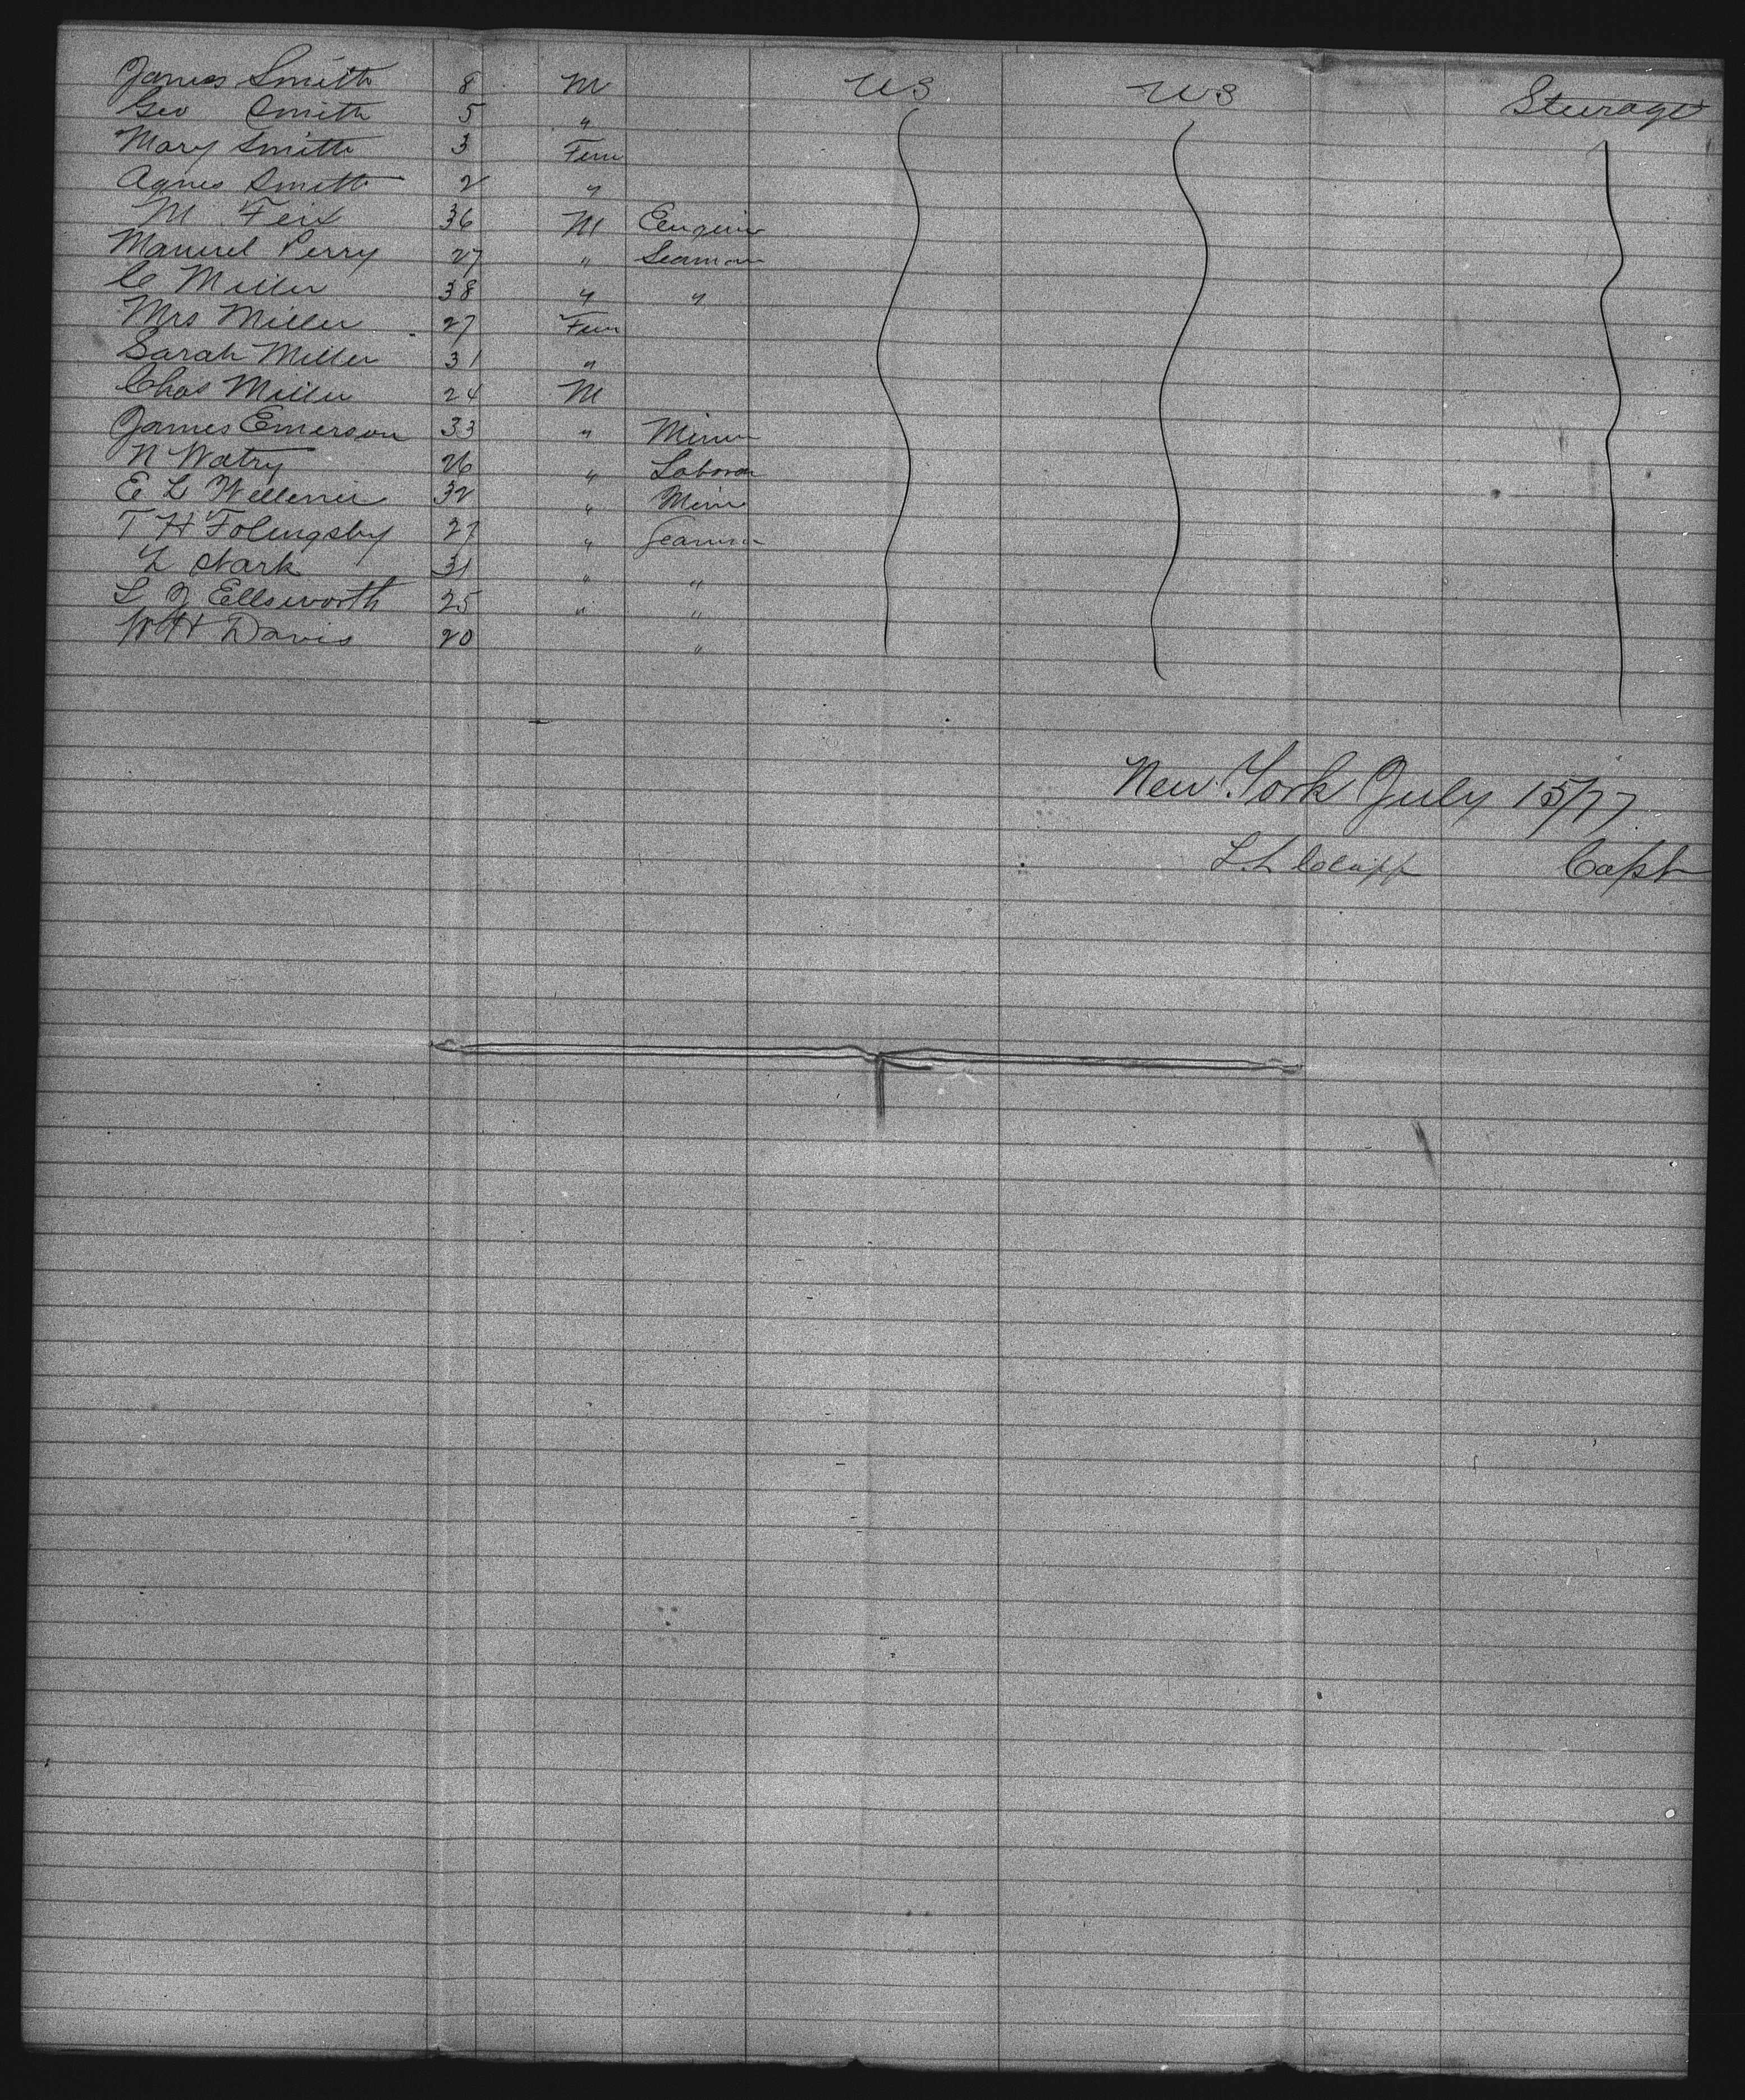 James Smith 8 M US US Steurage
Geo Smith 5 "
Mary Smith 3 Fem
Agnes Smith 2 "
M Feix 36 M
Manuel Perry 27 " Seaman
C Miller 38 " "
Mrs Miller 27 Fem
Sarah Miller 31 "
Chas Miller 24 M
James Emerson 33 " Miner
N Watry 26 " Laborer
E L 32 " Miner
T H Folingsby 27 " Seaman
L Stark 31 " "
L J Ellsworth 25 " "
W H Davis 20 "
New York July 15/77
L. L Clapp Capt